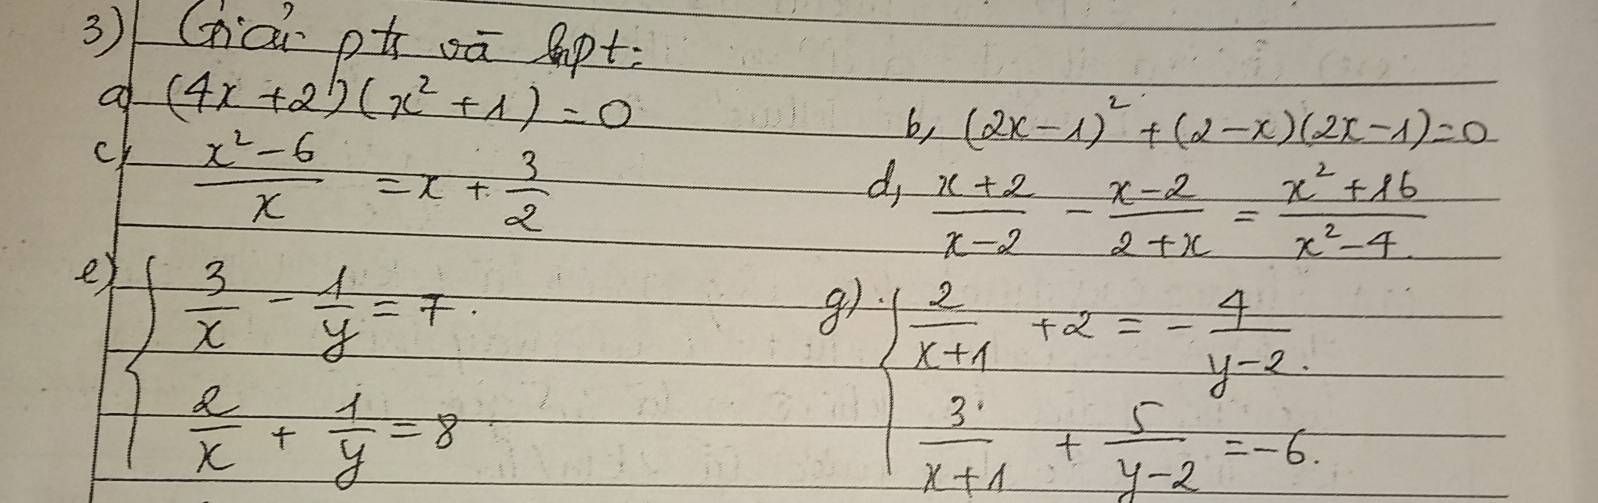 3) Giải pt và hpt:
a) (4x + 2)(x² + 1) = 0
b, (2x - 1)² + (2 - x)(2x - 1) = 0
c, \frac{x² - 6}{x} = x + \frac{3}{2}
d, \frac{x + 2}{x - 2} - \frac{x - 2}{2 + x} = \frac{x² + 16}{x² - 4}.
e) { \frac{3}{x} - \frac{1}{y} = 7.
\frac{2}{x} + \frac{1}{y} = 8
g) { \frac{2}{x + 1} + 2 = - \frac{4}{y - 2}.
\frac{3}{x + 1} + \frac{5}{y - 2} = -6.